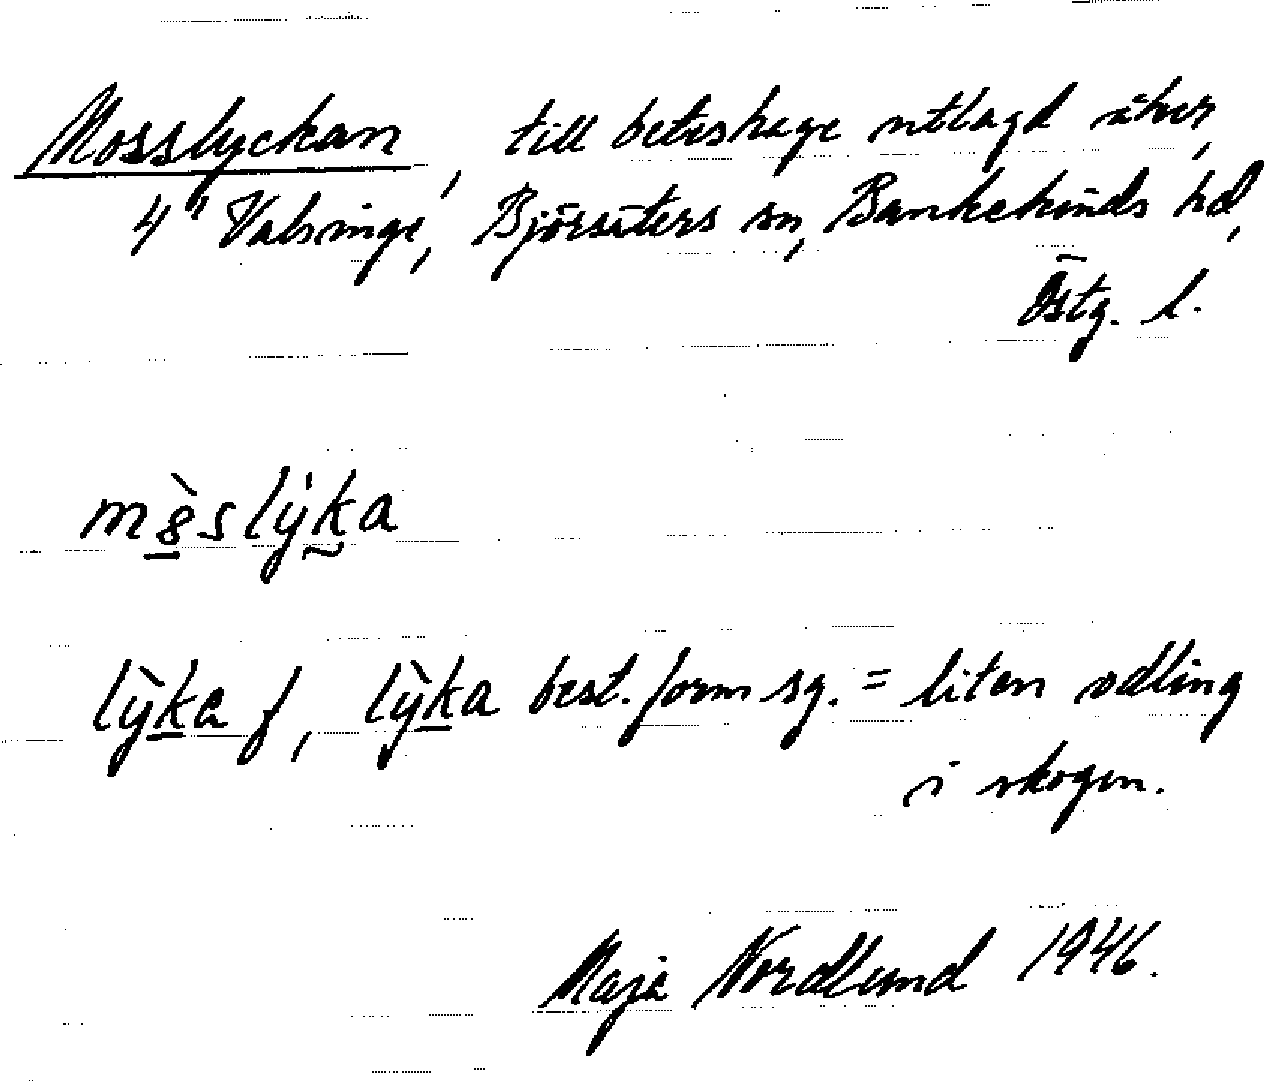 Mosslyckan, till beteshage utlagd åker,
4" Valsinge, Björsäters sn, Bankekinds hd,
Östg. l.
mòslýka
lỳka f, lỳka best. form sg. = liten odling
i skogen.
Maja Nordlund 1946.